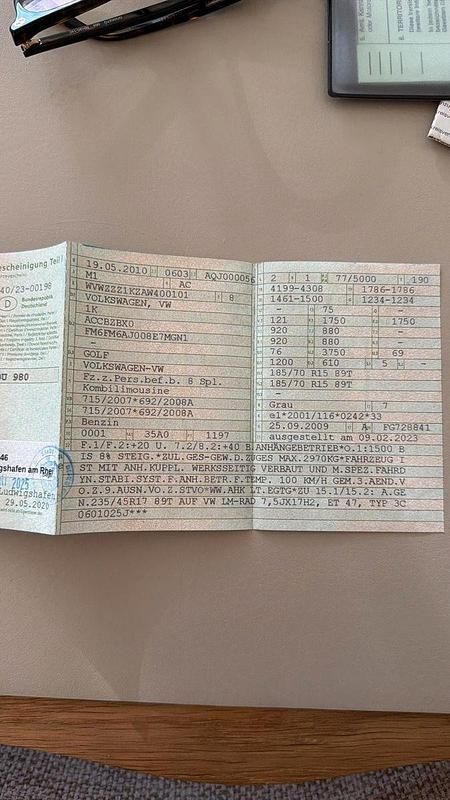 escheinigung Teil I
40/23-00198
D
Bundesrepublik
Deutschland
OU 980
46
igshafen am Rhei
2025
Ludwigshafen
29.05.2020
19.05.2010 0603 AQJ000056
M1 AC
WVWZZZ1KZAW400101 8
VOLKSWAGEN, VW
1K
ACCBZBX0
FM6FM6AJ008E7MGN1
–
GOLF
VOLKSWAGEN-VW
Fz.z.Pers.bef.b. 8 Spl.
Kombilimousine
715/2007*692/2008A
715/2007*692/2008A
Benzin
0001 35A0 1197
2 1 77/5000 190
4199-4308 1786-1786
1461-1500 1234-1234
– 75 –
121 1750 1750
920 880 –
920 880 –
76 3750 69
1200 610 5 –
185/70 R15 89T
185/70 R15 89T
–
Grau 7
e1*2001/116*0242*33
25.09.2009 A FG728841
ausgestellt am 09.02.2023
F.1/F.2:+20 U. 7.2/8.2:+40 B.ANHÄNGEBETRIEB*O.1:1500 B
IS 8% STEIG.*ZUL.GES-GEW.D.ZUGES MAX.2970KG*FAHRZEUG I
ST MIT ANH.KUPPL. WERKSSEITIG VERBAUT UND M.SPEZ.FAHRD
YN.STABI.SYST.F.ANH.BETR.F.TEMP. 100 KM/H GEM.3.AEND.V
O.Z.9.AUSN.VO.Z.STVO*WW.AHK LT.EGTG*ZU 15.1/15.2: A.GE
N.235/45R17 89T AUF VW LM-RAD 7,5JX17H2, ET 47, TYP 3C
0601025J***